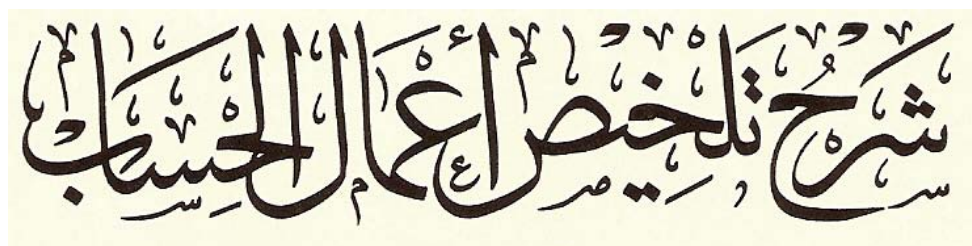 شرح تلخيص أعمال الحساب